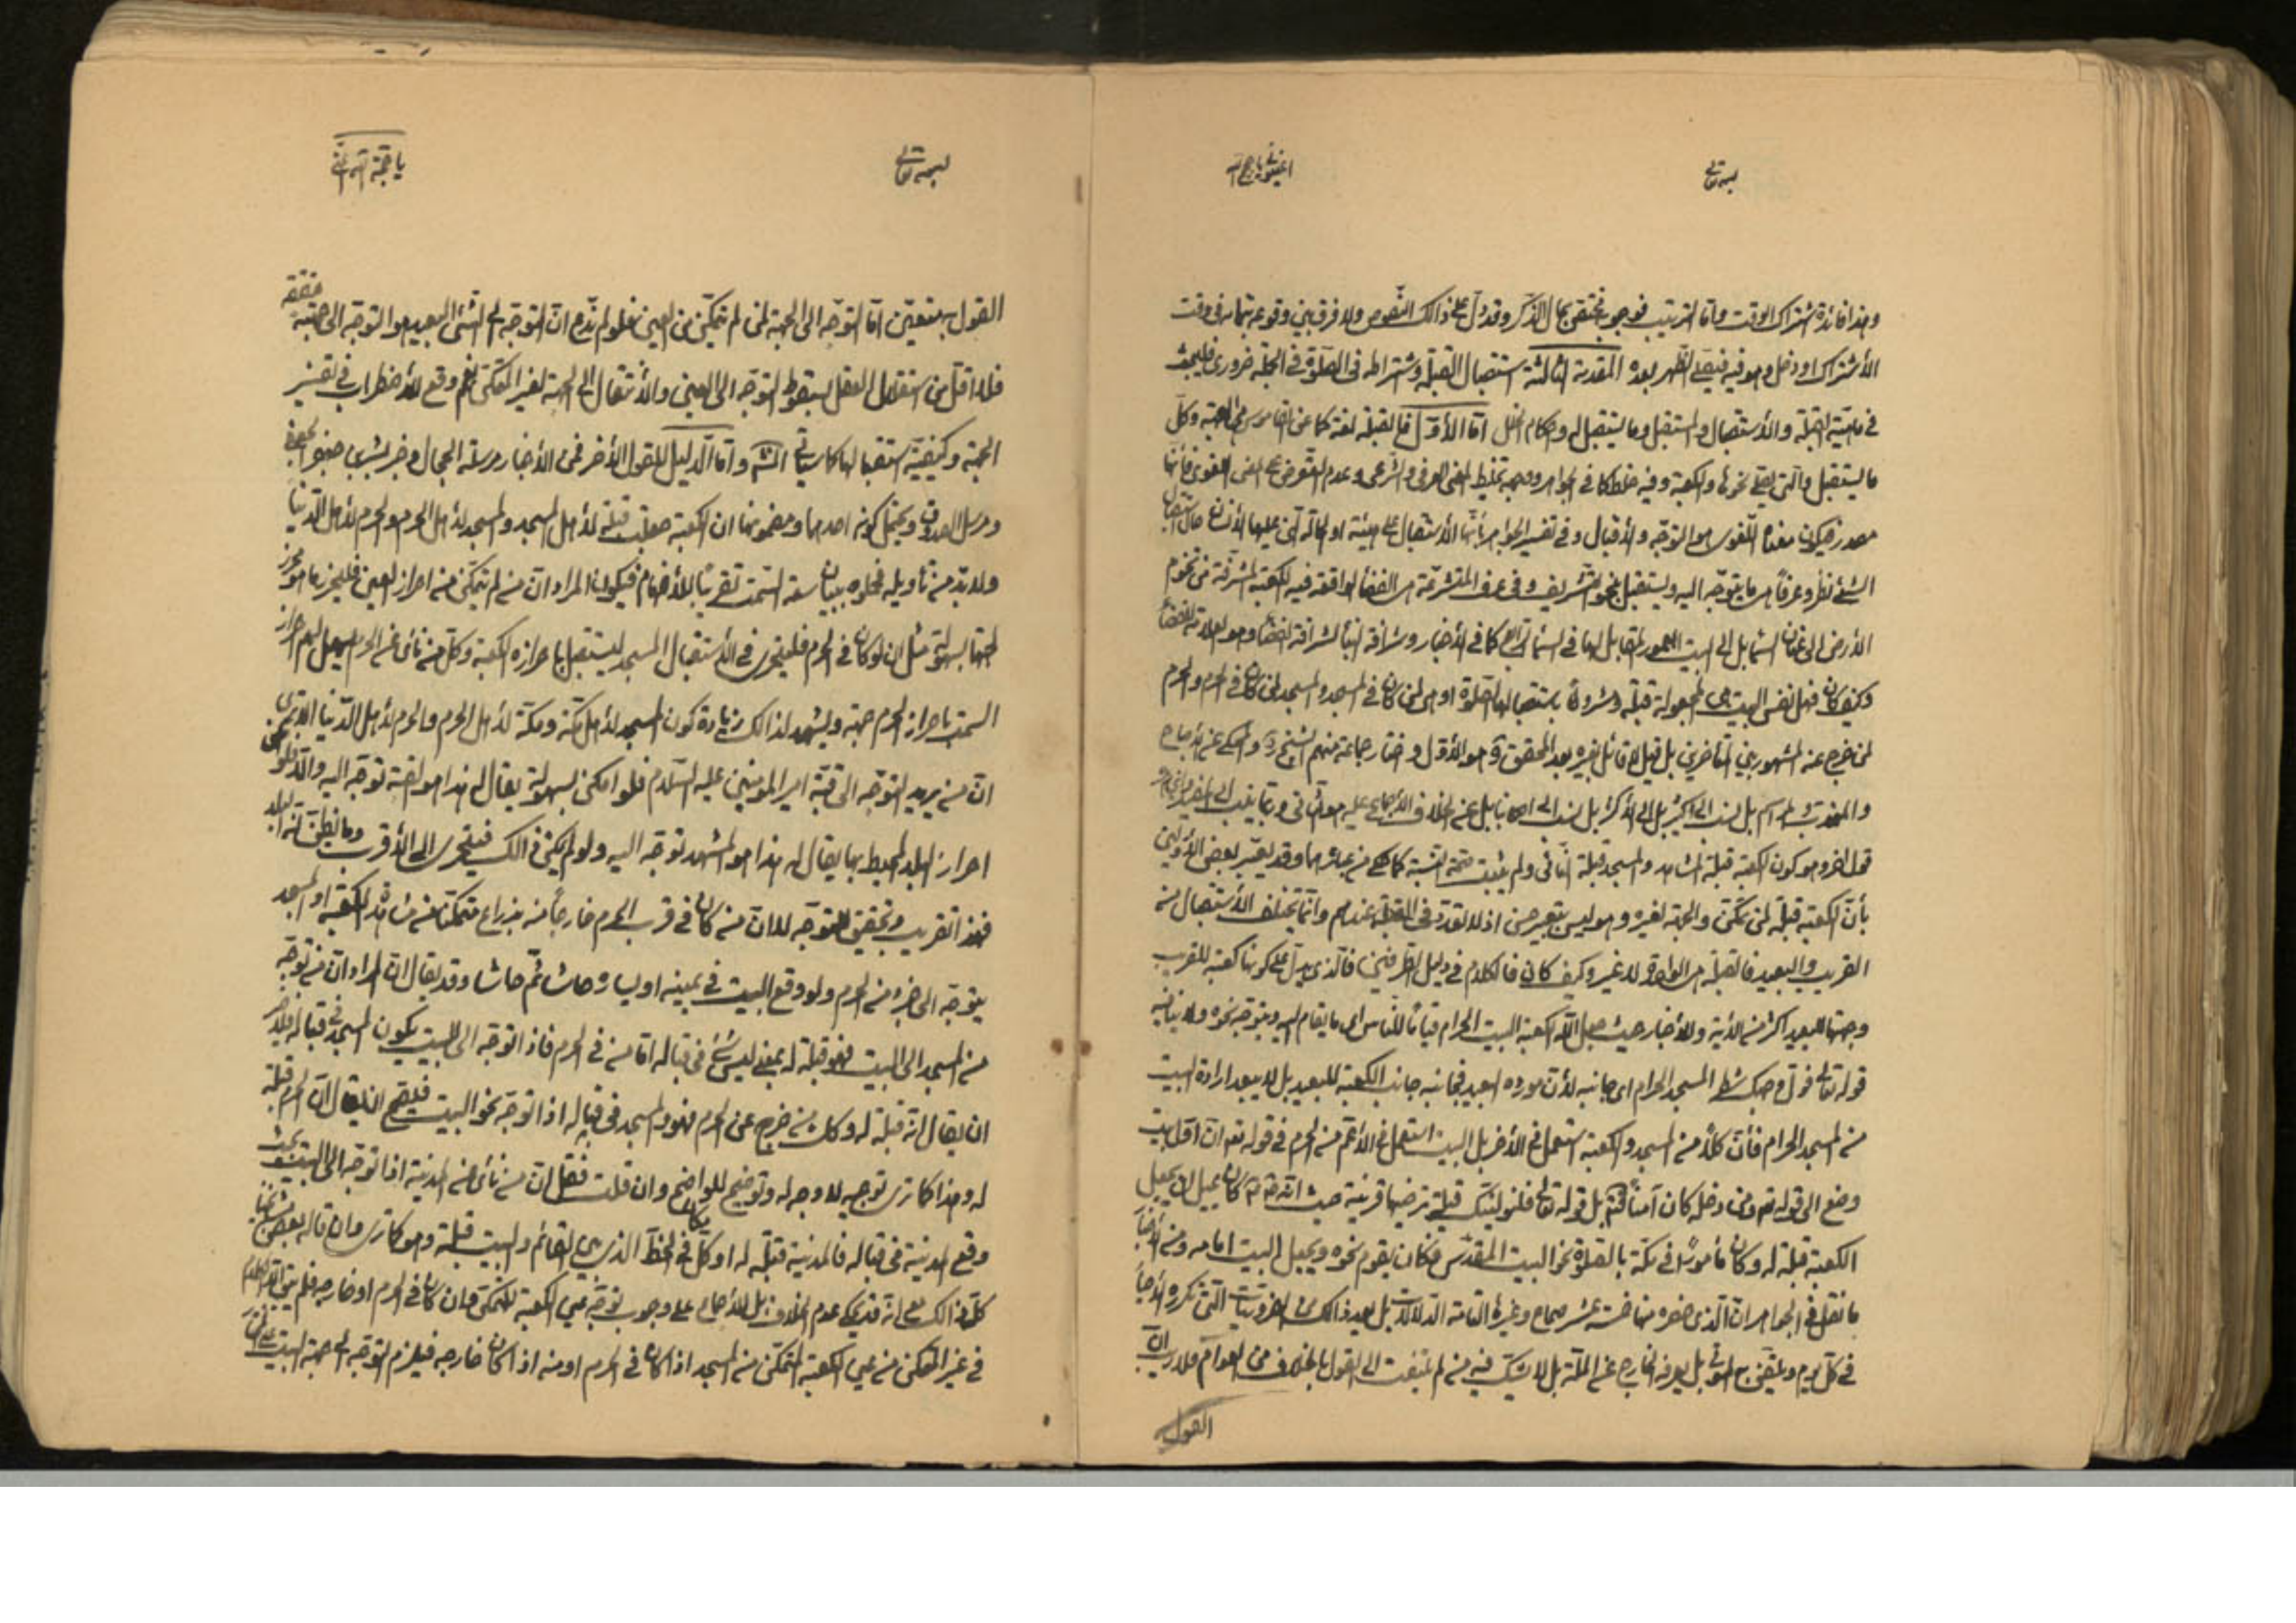 بسمه تعالى
وهذا فائدة اشتراك الوقت وامّا الترتيب فوجوبه مختصّ بحال الذكر وقد دلّ على ذالك النّصوص ولا فرق بين وقوعهما في وقت
الأشتراك او دخل وهو فيه فيصلّي الظهر بعده المقدمة الثالثة استقبال القبلة واشتراطه في الصّلوة في الجملة ضروري فليبحث
في ماهيّة القبلة والأستقبال والمستقبل وما يستقبل له واحكام الخلل امّا الأوّل فالقبلة لغة كما عن القاموس الجهة وكلّ
ما يستقبل والّتي يصلّى نحوها والكعبة وفيه خلط كما في الجواهر ووجهه تخليط المعنى العرفي والشّرعي وعدم التّعرض على المعنى اللغوي فأنّها
مصدر فيكون معناه اللّغوي هو التوجّه والأقبال وفي تفسير الجواهر بأنّها الأستقبال على هيئة او الحالة الّتي عليها الأنسان حال استقبال
الشّئ نظر وعرفاً هي ما يتوجّه اليه ويستقبل بنحو التّشريف وفي عرف المتشرّعة هي الفضاء الواقعة فيه الكعبة المشرّفة من تخوم
الأرض الى عنان السّماء بل الى البيت المعمور المقابل لها في السّماء الرّابع كما في الأخبار وشرافة البناء لشرافة الفضاء وهو العلامة للفضاء
وكيف كان فهل نفس البيت هي المجعولة قبلة ومشروطاً باستقبالها الصّلوة او هي لمن كان في المسجد والمسجد لمن كان في الحرم والحرم
لمن خرج عنه المشهور بين المتأخّرين بل قيل لا قائل بغيره بعد المحقق ره هو الأوّل واختار جماعة منهم الشيخ ره والمحكي عن
بل نسب الى اكثر بل الى الأكثر بل نسب الى اصحابنا بل عن الخلاف الأجماع عليه هو الثّاني وربّما ينسب الى
قول اخر وهو كون الكعبة قبلة المشاهد والمسجد قبلة النّائي ولم يثبت صحّة النّسبة كما وقد يعبّر بعض الأوّلين
بأنّ الكعبة قبلة لمن تمكّن والجهة لغيره وهو ليس بتعبير حسن اذ لا تعدّد في القبلة عندهم وانّما يختلف الأستقبال من
القريب والبعيد فالقبلة هي الواحد لا غير وكيف كان فالكلام في دليل الطّرفين فالّذي يدلّ على كونها كعبة للقريب
وجهتها للبعيد اكثر من الأية والأخبار حيث جعل اللّه الكعبة البيت الحرام قياماً للنّاس اى ما يقام اليه ويتوجّه نحوه ولا ينافيه
قوله تعالى فولّ وجهك شطر المسجد الحرام اى جانبه لأن مورده البعيد فجانبه جانب الكعبة للبعيد بل لا يبعد ارادة البيت
من المسجد الحرام فأنّ كلّاً من المسجد والكعبة استعمل في الأخر بل البيت استعمل في الأعمّ من الحرم في قوله تع انّ اوّل بيت
وضع الى قوله تع ومن دخله كان آمناً فتم بل قوله تعالى فلنولّينّك قبلة ترضيها قرينة حيث انّه ص كان يميل ان يجعل
الكعبة قبلة له وكان مأموراً في مكّة بالصّلوة نحو البيت المقدّس فكان يقوم نحوه ويجعل البيت امامه ومن الأخبار
ما نقل في الجواهر انّ الّذي حضره منها خمسة عشر صحاح وغيرها التامّة الدّلالات بل يعد ذالك من الضّروريّات الّتي تكرّره الأحياء
في كلّ يوم ويلقّن بها الموتى بل يعرفه الخارج عن الملّة بل لا يشكّ فيه من لم يلتفت الى القول بالخلاف من العوام فلا ريب انّ
القول
بسمه تعالى
القول به متعيّن امّا التوجّه الى الجهة لمن لم يتمكّن من العين فلو لم ندّع انّ التوجّه الى الشّئ البعيد هو التوجّه الى جهته حقيقة
فلا اقلّ من استقلال العقل بسقوط التوجّه الى العين والأنتقال الى الجهة لغير المتمكّن نعم وقع الأضطراب في تفسير
الجهة وكيفيّة استقبالها كما سيأتي انش وامّا الدّليل للقول الأخر فمن الأخبار مرسلة الحجال وخبر بشر بن جعفر الجعفي
ومرسل الصدوق ويحتمل كونه احدهما ومضمونها ان الكعبة جعلت قبلة لأهل المسجد والمسجد لأهل الحرم والحرم لأهل الدّنيا
ولا بدّ من تأويله فحملوه ببيان سعة السّمت تقريباً للأفهام فيكون المراد انّ من لم يتمكّن من احراز العين فليحرز ما هو محرز
لجهتها بسهولة مثل ان لو كان في الحرم فليتحرّى في الأستقبال المسجد ليستقبل باحرازه الكعبة وكلّ من نائ عن الحرم يسهل لهم احراز
السّمت باحراز الحرم جهة ويشهد لذالك زيادة كون المسجد لأهل مكّة ومكّة لأهل الحرم والحرم لأهل الدّنيا
انّ من يريد التوجّه الى قبّة امير المؤمنين عليه السّلام فلو امكن بسهولة يقال له هذا هو القبّة توجّه اليه والّا
احراز البلد المحيط بها يقال له هذا هو المشهد توجّه اليه ولو لم يمكن ذالك فيتحرّى الى الأقرب وما يظنّ انّه البلد
فهذا تقريب وتحقيق للتوجّه لا انّ من كان في قرب الحرم خارجاً منه بذراع متمكّناً من مشاهدة الكعبة او المسجد
يتوجّه الى جزء من الحرم ولو وقع البيت في يمينه او يساره حاشا ثمّ حاشا وقد يقال انّ المراد انّ من توجّه
من المسجد الى البيت فهو قبلة له بمعنى ليس شئ في قباله امّا من في الحرم فاذا توجّه الى البيت يكون المسجد في قباله فلا ضير
ان يقال انّه قبلة له وكلّ من خرج عن الحرم فهو والمسجد في قباله اذا توجّه نحو البيت فليصحّ ان يقال انّ الحرم قبلة
له وهذا كما ترى توجيه لا وجه له وتوضيح للواضح وان قلت فقل انّ من نائ عن المدينة اذا توجّه الى البيت بحيث
وقع المدينة في قباله فالمدينة قبلة له او كلّ مكان في الخطّ الّذي بين القائم والبيت قبلة وهو كما ترى وان قاله بعض مشايخنا
كلّ ذالك مع انّه قد يحكى عدم الخلاف بل الأجماع على وجوب توجّه عين الكعبة للمتمكّن وان كان في الحرم او خارجه فلم يبق
في غير المتمكّن من عين الكعبة المتمكّن من المسجد اذا كان في الحرم او منه اذا كان خارجه فيلزم التوجّه الى جهة البيت